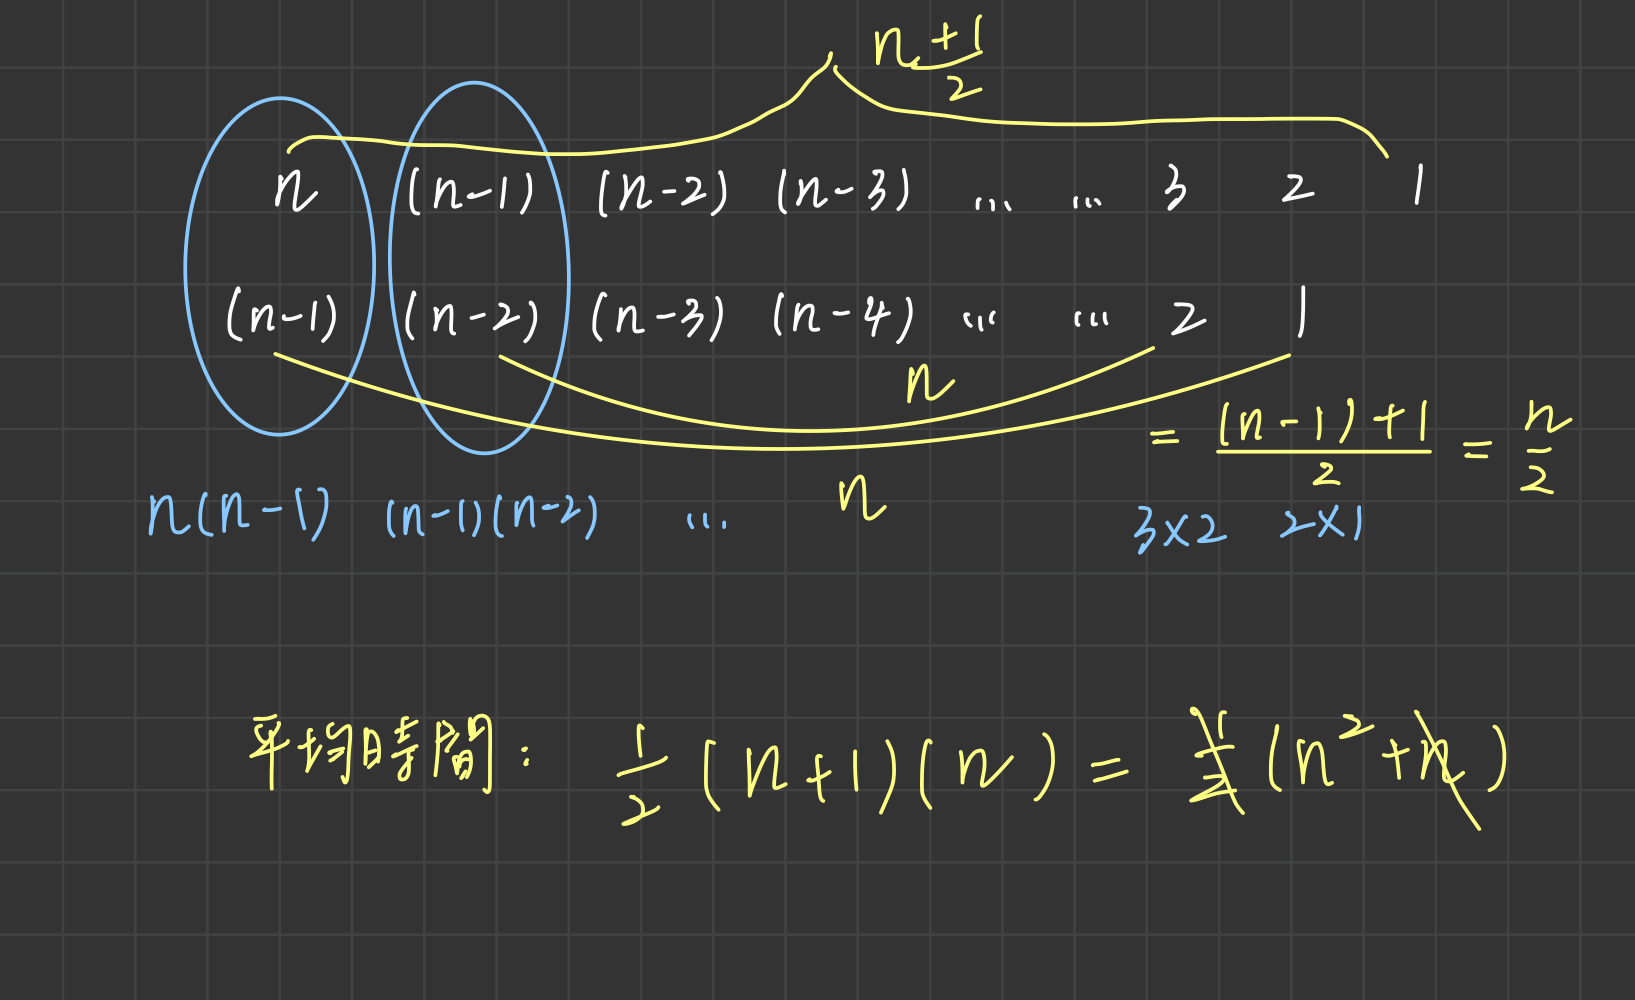 n+1/2
n (n-1) (n-2) (n-3) ... ... 3 2 1
(n-1) (n-2) (n-3) (n-4) ... ... 2 1
n
= (n-1)+1/2 = n/2
n
n(n-1) (n-1)(n-2) ... 3×2 2×1
平均時間: 1/2 (n+1)(n) = 1/2 (n²+n)